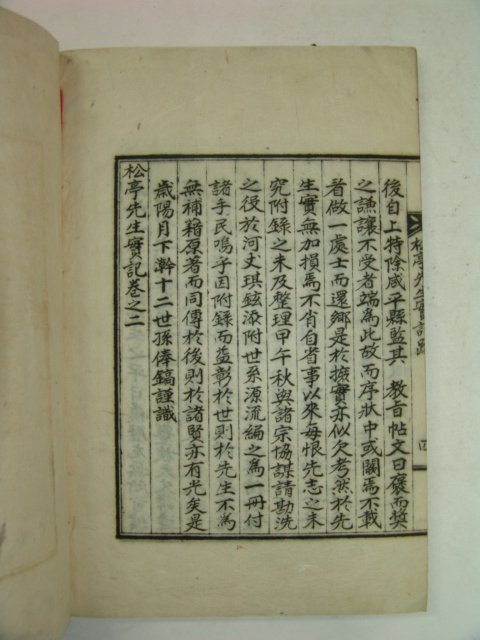 後自上特除咸平縣監其 教旨帖文曰褒而奬
之謙讓不受者端為此故而序狀中或闕焉不載
者做一處士而還鄕是於摭實亦似欠考然於先
生實無加損焉不肖自省事以來每恨先志之未
究附錄之未及整理甲午秋與諸宗協謀請勘洗
之役於河丈琪鉉添附世系源流編之為一冊付
諸手民嗚乎因附錄而益彰於世則於先生不為
無補籍原著而同傳於後則於諸賢亦有光矣是
歲陽月下澣十二世孫俸鎬謹識
松亭先生實記卷之二
松亭先生實記跋
四